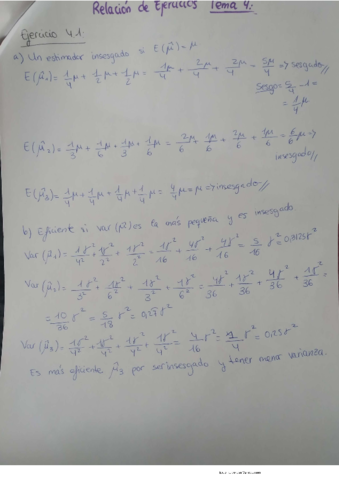 Relación de Ejercicios Tema 4:
Ejercicio 4.1
a) Un estimador insesgado si E(μ̂) = μ
E(μ̂₁) = 1/4 μ + 1/2 μ + 1/2 μ = 1μ/4 + 2μ/4 + 2μ/4 = 5μ/4 => sesgado //
Sesgo = 5/4 - 1 =
= 1/4 μ
E(μ̂₂) = 1/3 μ + 1/6 μ + 1/3 μ + 1/6 μ = 2μ/6 + 1μ/6 + 2μ/6 + 1μ/6 = 6/6 μ =>
insesgado //
E(μ̂₃) = 1/4 μ + 1/4 μ + 1/4 μ + 1/4 μ = 4/4 μ = μ => insesgado //
b) Eficiente si var(μ̂) es la más pequeña y es insesgado
Var(μ̂₁) = 1σ²/4² + 1σ²/2² + 1σ²/2² = 1σ²/16 + 4σ²/16 + 4σ²/16 =
Var(μ̂₂) = 1σ²/3² + 1σ²/6² + 1σ²/3² + 1σ²/6² = 4σ²/36 + 1σ²/36 + 4σ²/36 + 1σ²/36 =
= 10/36 σ² = 5/18 σ² =
Var(μ̂₃) = 1σ²/4² + 1σ²/4² + 1σ²/4² + 1σ²/4² = 4/16 σ² = 1/4 σ² = 0,25σ²
Es más eficiente μ̂₃ por ser insesgado y tener menor varianza